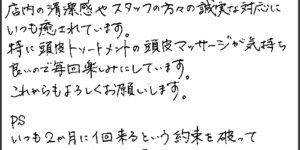 店内の清潔感やスタッフの方々の誠実な対応に
いつも癒されています。
特に頭皮トリートメントの頭皮マッサージが気持ち
良いので毎回楽しみにしています。
これからもよろしくお願いします。
PS
いつも2ヶ月に1回来るという約束を破って